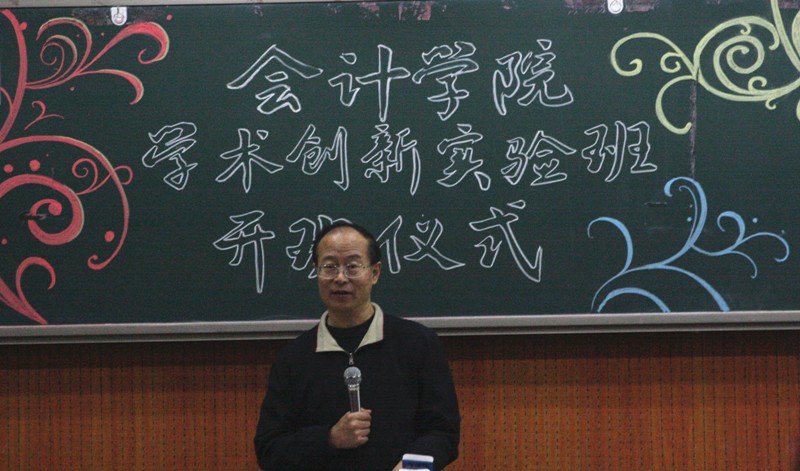 会计学院
学术创新实验班
开班仪式